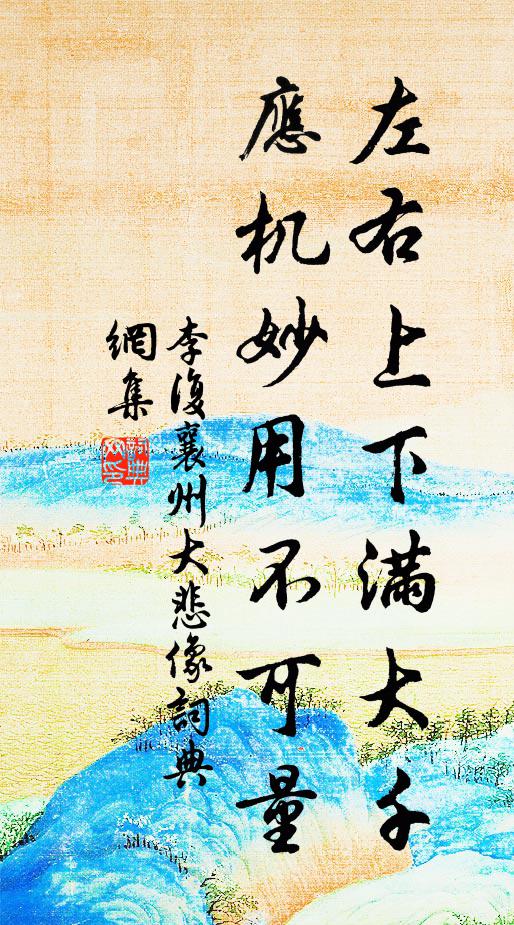 左右上下满大千
應机妙用不可量
李復襄州大悲像詞典
網集